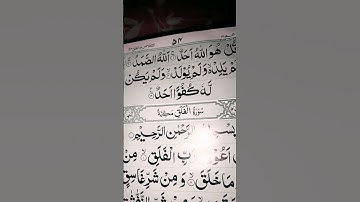 ۵۴
قُلْ هُوَ اللّٰهُ اَحَدٌ ۚ اَللّٰهُ الصَّمَدُ ۚ
لَمْ يَلِدْ ۙ وَلَمْ يُوْلَدْ ۙ وَلَمْ يَكُنْ
لَّهٗ كُفُوًا اَحَدٌ
سُوْرَةُ الْفَلَقِ مَكِّيَّةٌ
بِسْمِ الرَّحْمٰنِ الرَّحِيْمِ
اَعُوْذُ بِرَبِّ الْفَلَقِ ۙ مِنْ
مَا خَلَقَ ۙ وَ مِنْ شَرِّ غَاسِقٍ
مِنْ شَرِّ النَّفّٰثٰتِ